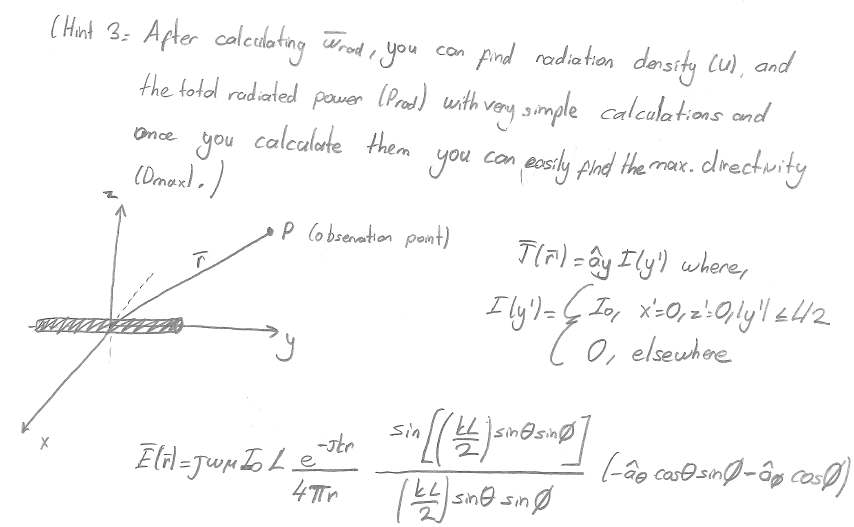 (Hint 3: After calculating W̅rad, you can find radiation density (U), and
the total radiated power (Prad) with very simple calculations and
once you calculate them you can easily find the max. directivity
(Dmax).)
z
r̅
P (observation point)
y
x
J̅(r̅') = ây I(y') where,
I(y') = { I₀, x'=0, z'=0, |y'| ≤ L/2
0, elsewhere
E̅(r̅) = jωμ I₀ L e^(-jkr) / 4πr · sin[(kL/2) sinθ sinØ] / (kL/2) sinθ sinØ (-âθ cosθ sinØ - âø cosØ)